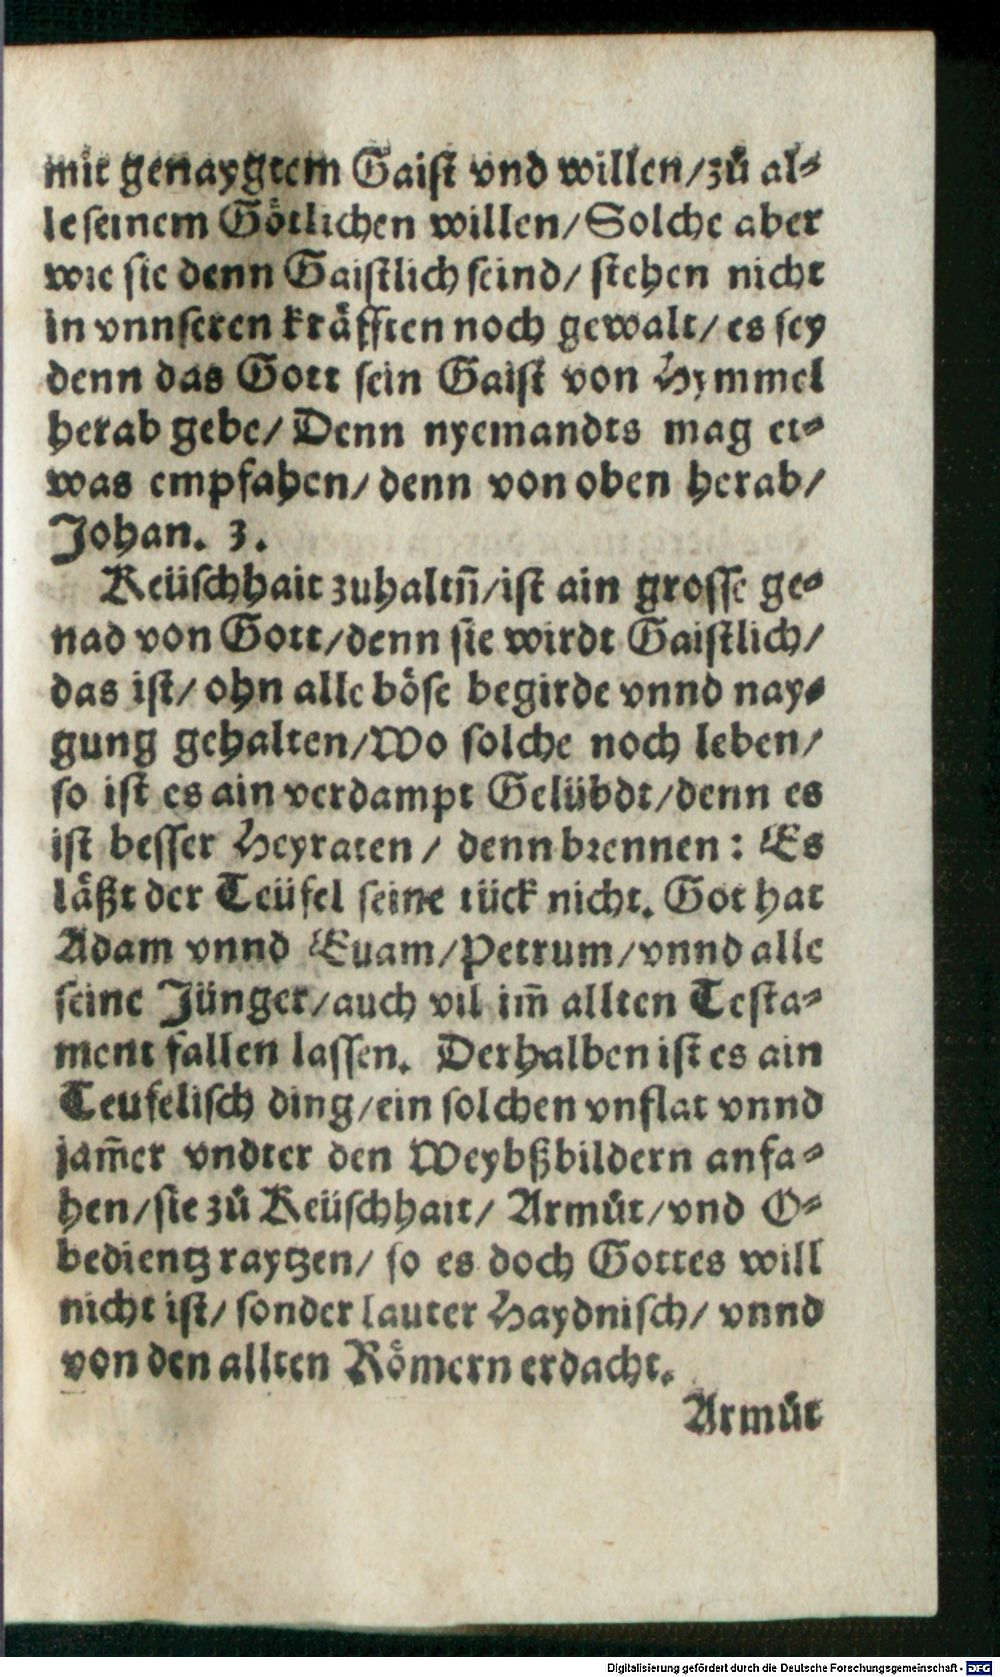 mit genaygtem Gaist vnd willen/zů al⸗
le seinem Götlichen willen/Solche aber
wie sie denn Gaistlich seind/ stehen nicht
in vnnseren kräfften noch gewalt/ es sey
denn das Gott sein Gaist von Hymmel
herab gebe/ Denn nyemandts mag et⸗
was empfahen/ denn von oben herab/
Johan. 3.
Keüschhait zuhaltñ/ist ain grosse ge⸗
nad von Gott/denn sie wirdt Gaistlich/
das ist/ ohn alle böse begirde vnnd nay⸗
gung gehalten/Wo solche noch leben/
so ist es ain verdampt Gelübdt/denn es
ist besser Heyraten / denn brennen: Es
läßt der Teüfel seine tück nicht. Got hat
Adam vnnd Euam/Petrum/vnnd alle
seine Jünger/auch vil im̄ allten Testa⸗
ment fallen lassen. Derhalben ist es ain
Teufelisch ding/ein solchen vnflat vnnd
jam̄er vndter den Weybßbildern anfa⸗
hen/sie zů Keüschhait/ Armůt/vnd O⸗
bedientz raytzen/ so es doch Gottes will
nicht ist/ sonder lauter Haydnisch/ vnnd
von den allten Römern erdacht.
Armůt
Digitalisierung gefördert durch die Deutsche Forschungsgemeinschaft - DFG